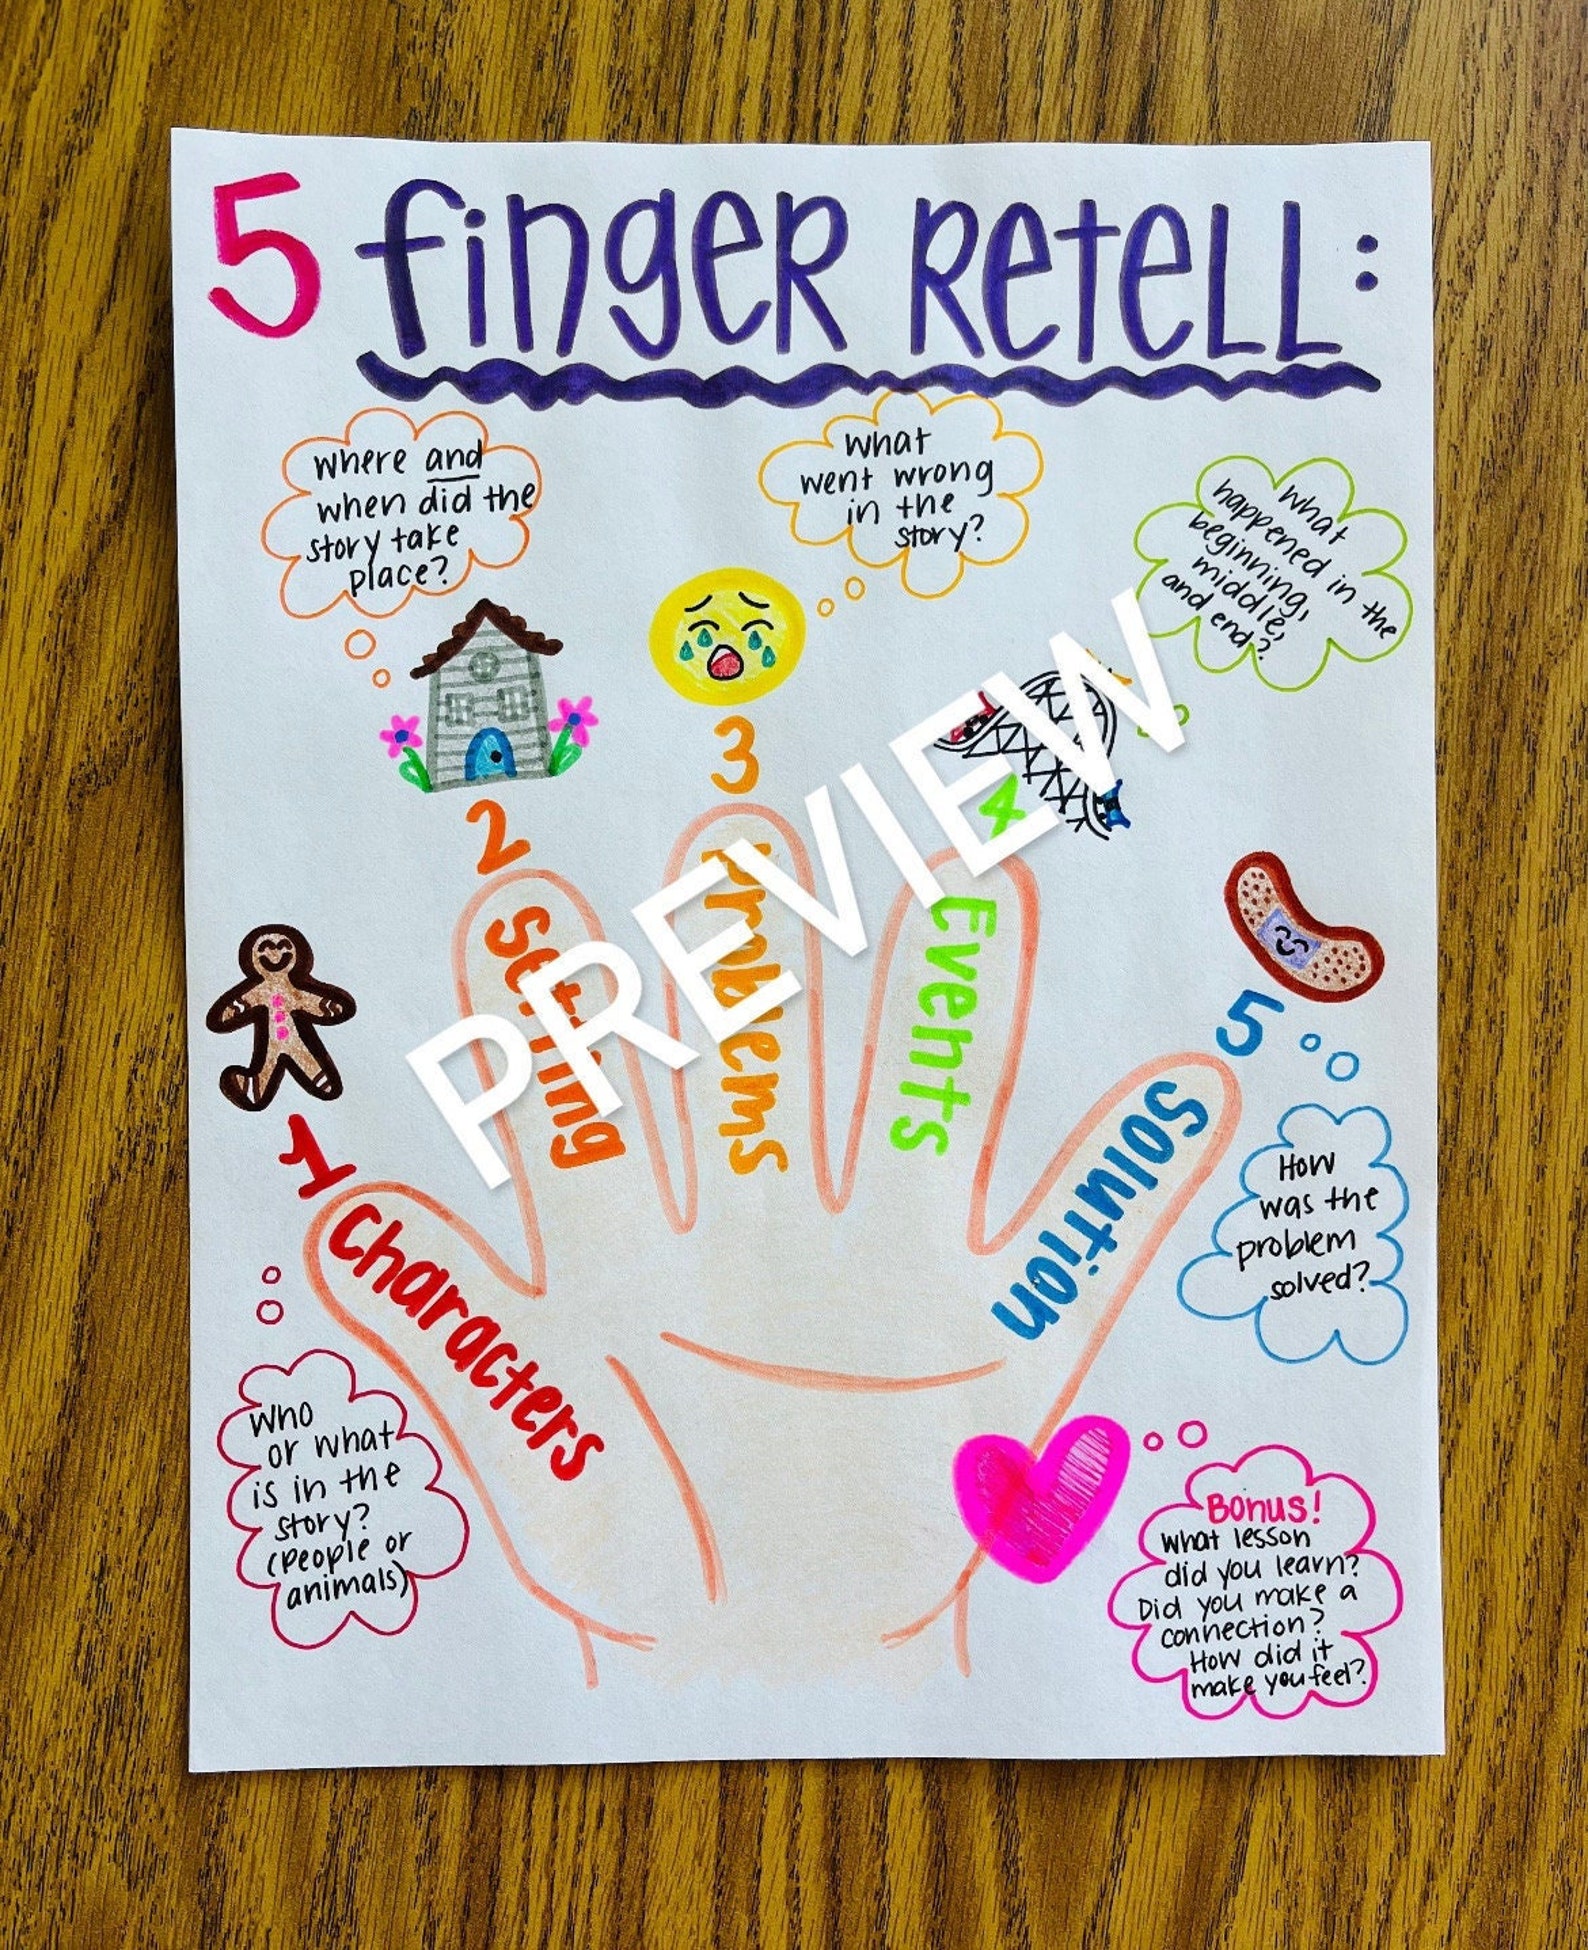 5 finger Retell:
where and
when did the
story take
place?
What
went wrong
in the
story?
What
happened in the
beginning,
middle,
and end?
2
3
4
5
1
Setting
Problems
Events
Solution
Characters
PREVIEW
How
was the
problem
solved?
Who
or what
is in the
story?
(people or
animals)
Bonus!
What lesson
did you learn?
Did you make a
connection?
How did it
make you feel?